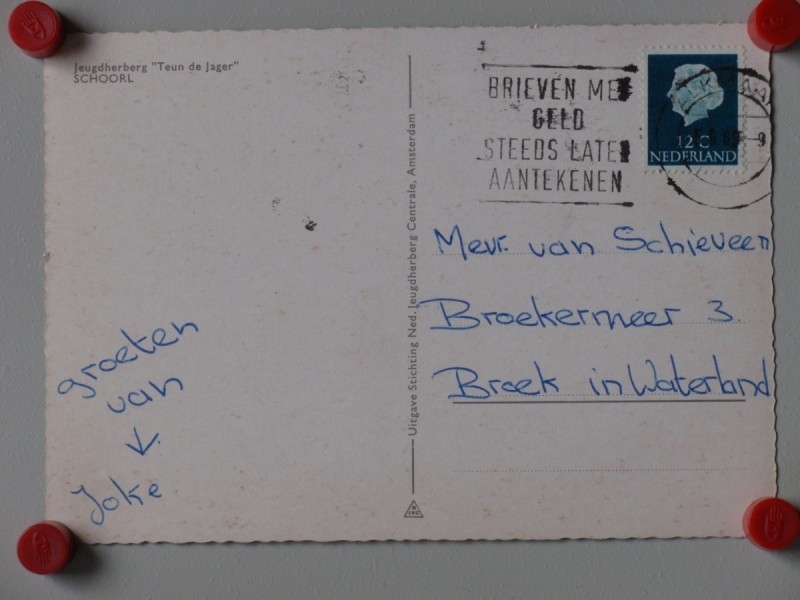 Jeugdherberg "Teun de Jager"
SCHOORL
BRIEVEN MET
GELD
STEEDS LATEN
AANTEKENEN
12 C
NEDERLAND
Uitgave Stichting Ned. Jeugdherberg Centrale, Amsterdam
Mevr. van Schieveen
Broekermeer 3.
Broek in Waterland
groeten
van
Joke